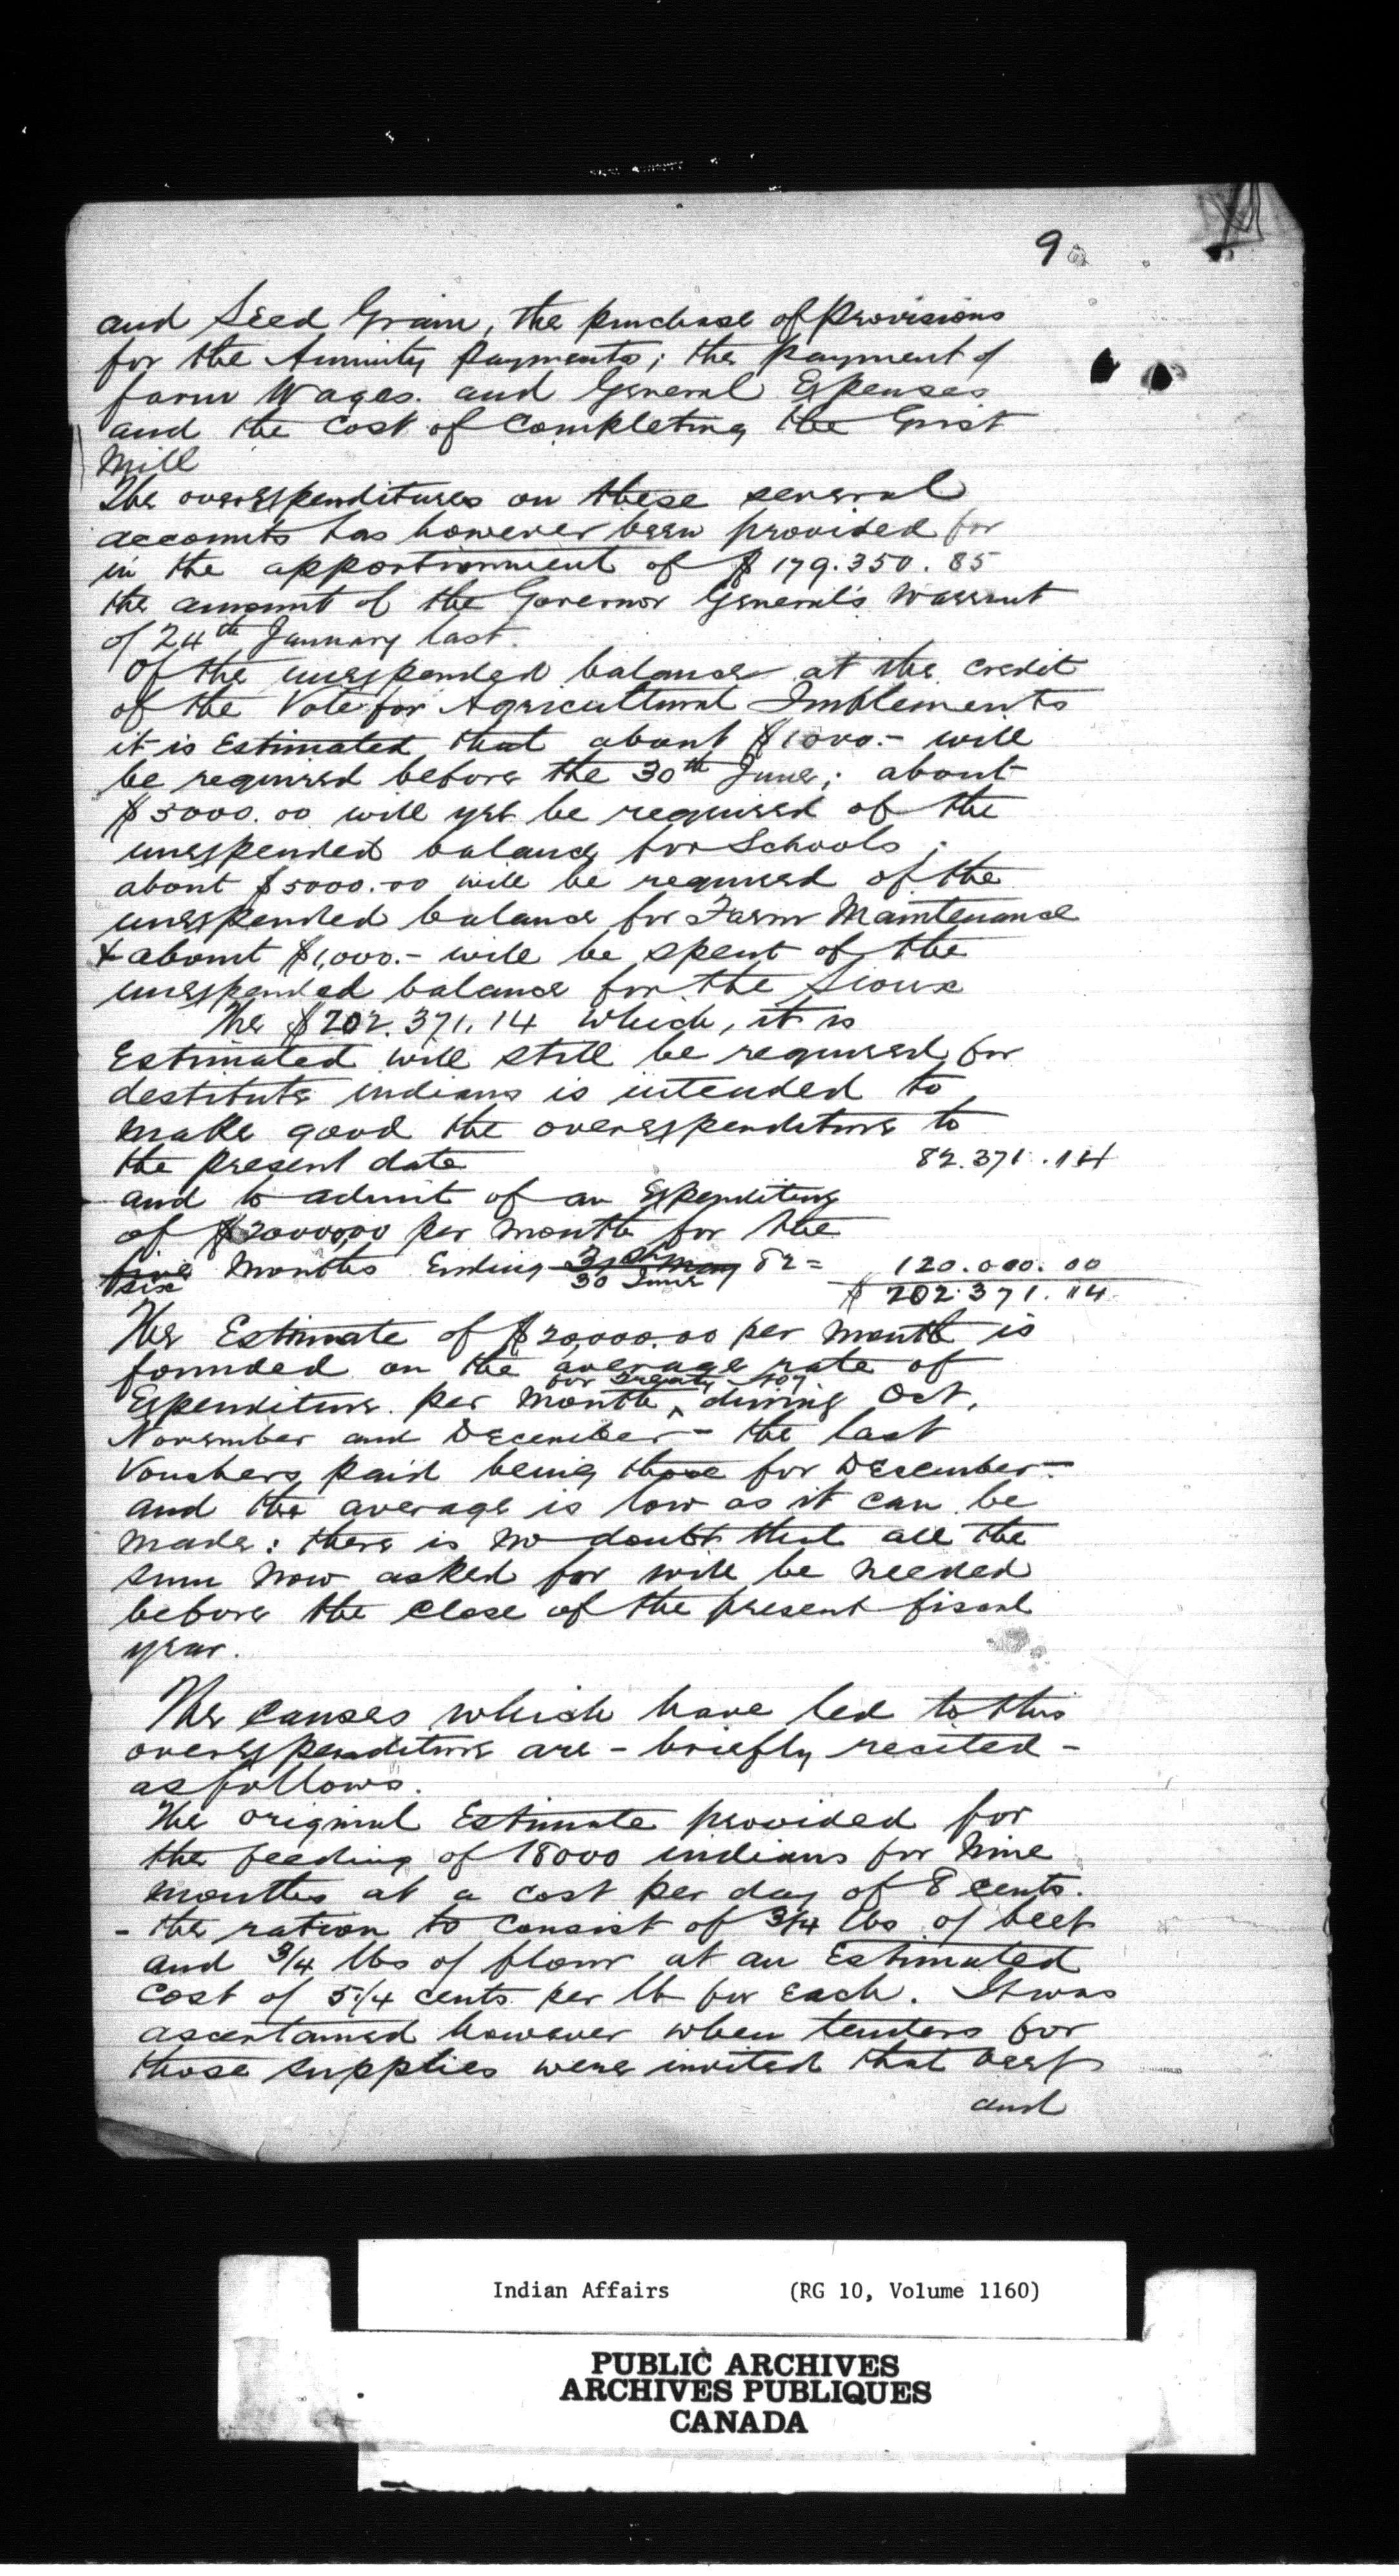 9
and Seed Grain, the purchase of provisions
for the Annuity payments; the payment of
farm Wages. and General Expenses
and the Cost of Completing the Grist
Mill
The overexpenditures on these several
accounts has however been provided for
in the apportionment of $179.350.85
the amount of the Governor General's Warrant
of 24th January last.
Of the unexpended balance at the credit
of the Vote for Agricultural Implements
it is Estimated that about $1000.- will
be required before the 30th June; about
$5000.00 will yet be required of the
unexpended balance for Schools;
about $5000.00 will be required of the
unexpended balance for Farm Maintenance
& about $1,000.- will be spent of the
unexpended balance for the Sioux
The $202.371.14 which, it is
Estimated will still be required for
destitute indians is intended to
make good the overexpenditure to
the present date 82.371.14
and to admit of an Expenditure
of $20000,00 per month for the
five months Ending 31st May 82= 120.000.00
six 30 June $ 202.371.14
The Estimate of $20,000.00 per month is
founded on the average rate of
for Treaty
Expenditure. per month, during Oct,
November and December - the last
Vouchers paid being those for December-
and the average is low as it can be
made: there is no doubt that all the
sum now asked for will be needed
before the close of the present fiscal
year.
The causes which have led to this
overexpenditure are - briefly recited -
as follows.
The original Estimate provided for
the feeding of 18000 indians for Nine
months at a cost per day of 8 cents.
- the ration to consist of 3/4 lbs of beef
and 3/4 lbs of flour at an Estimated
cost of 5 1/4 cents per lb for each. It was
ascertained however when tenders for
those supplies were invited that beef
and
Indian Affairs (RG 10, Volume 1160)
PUBLIC ARCHIVES
ARCHIVES PUBLIQUES
CANADA